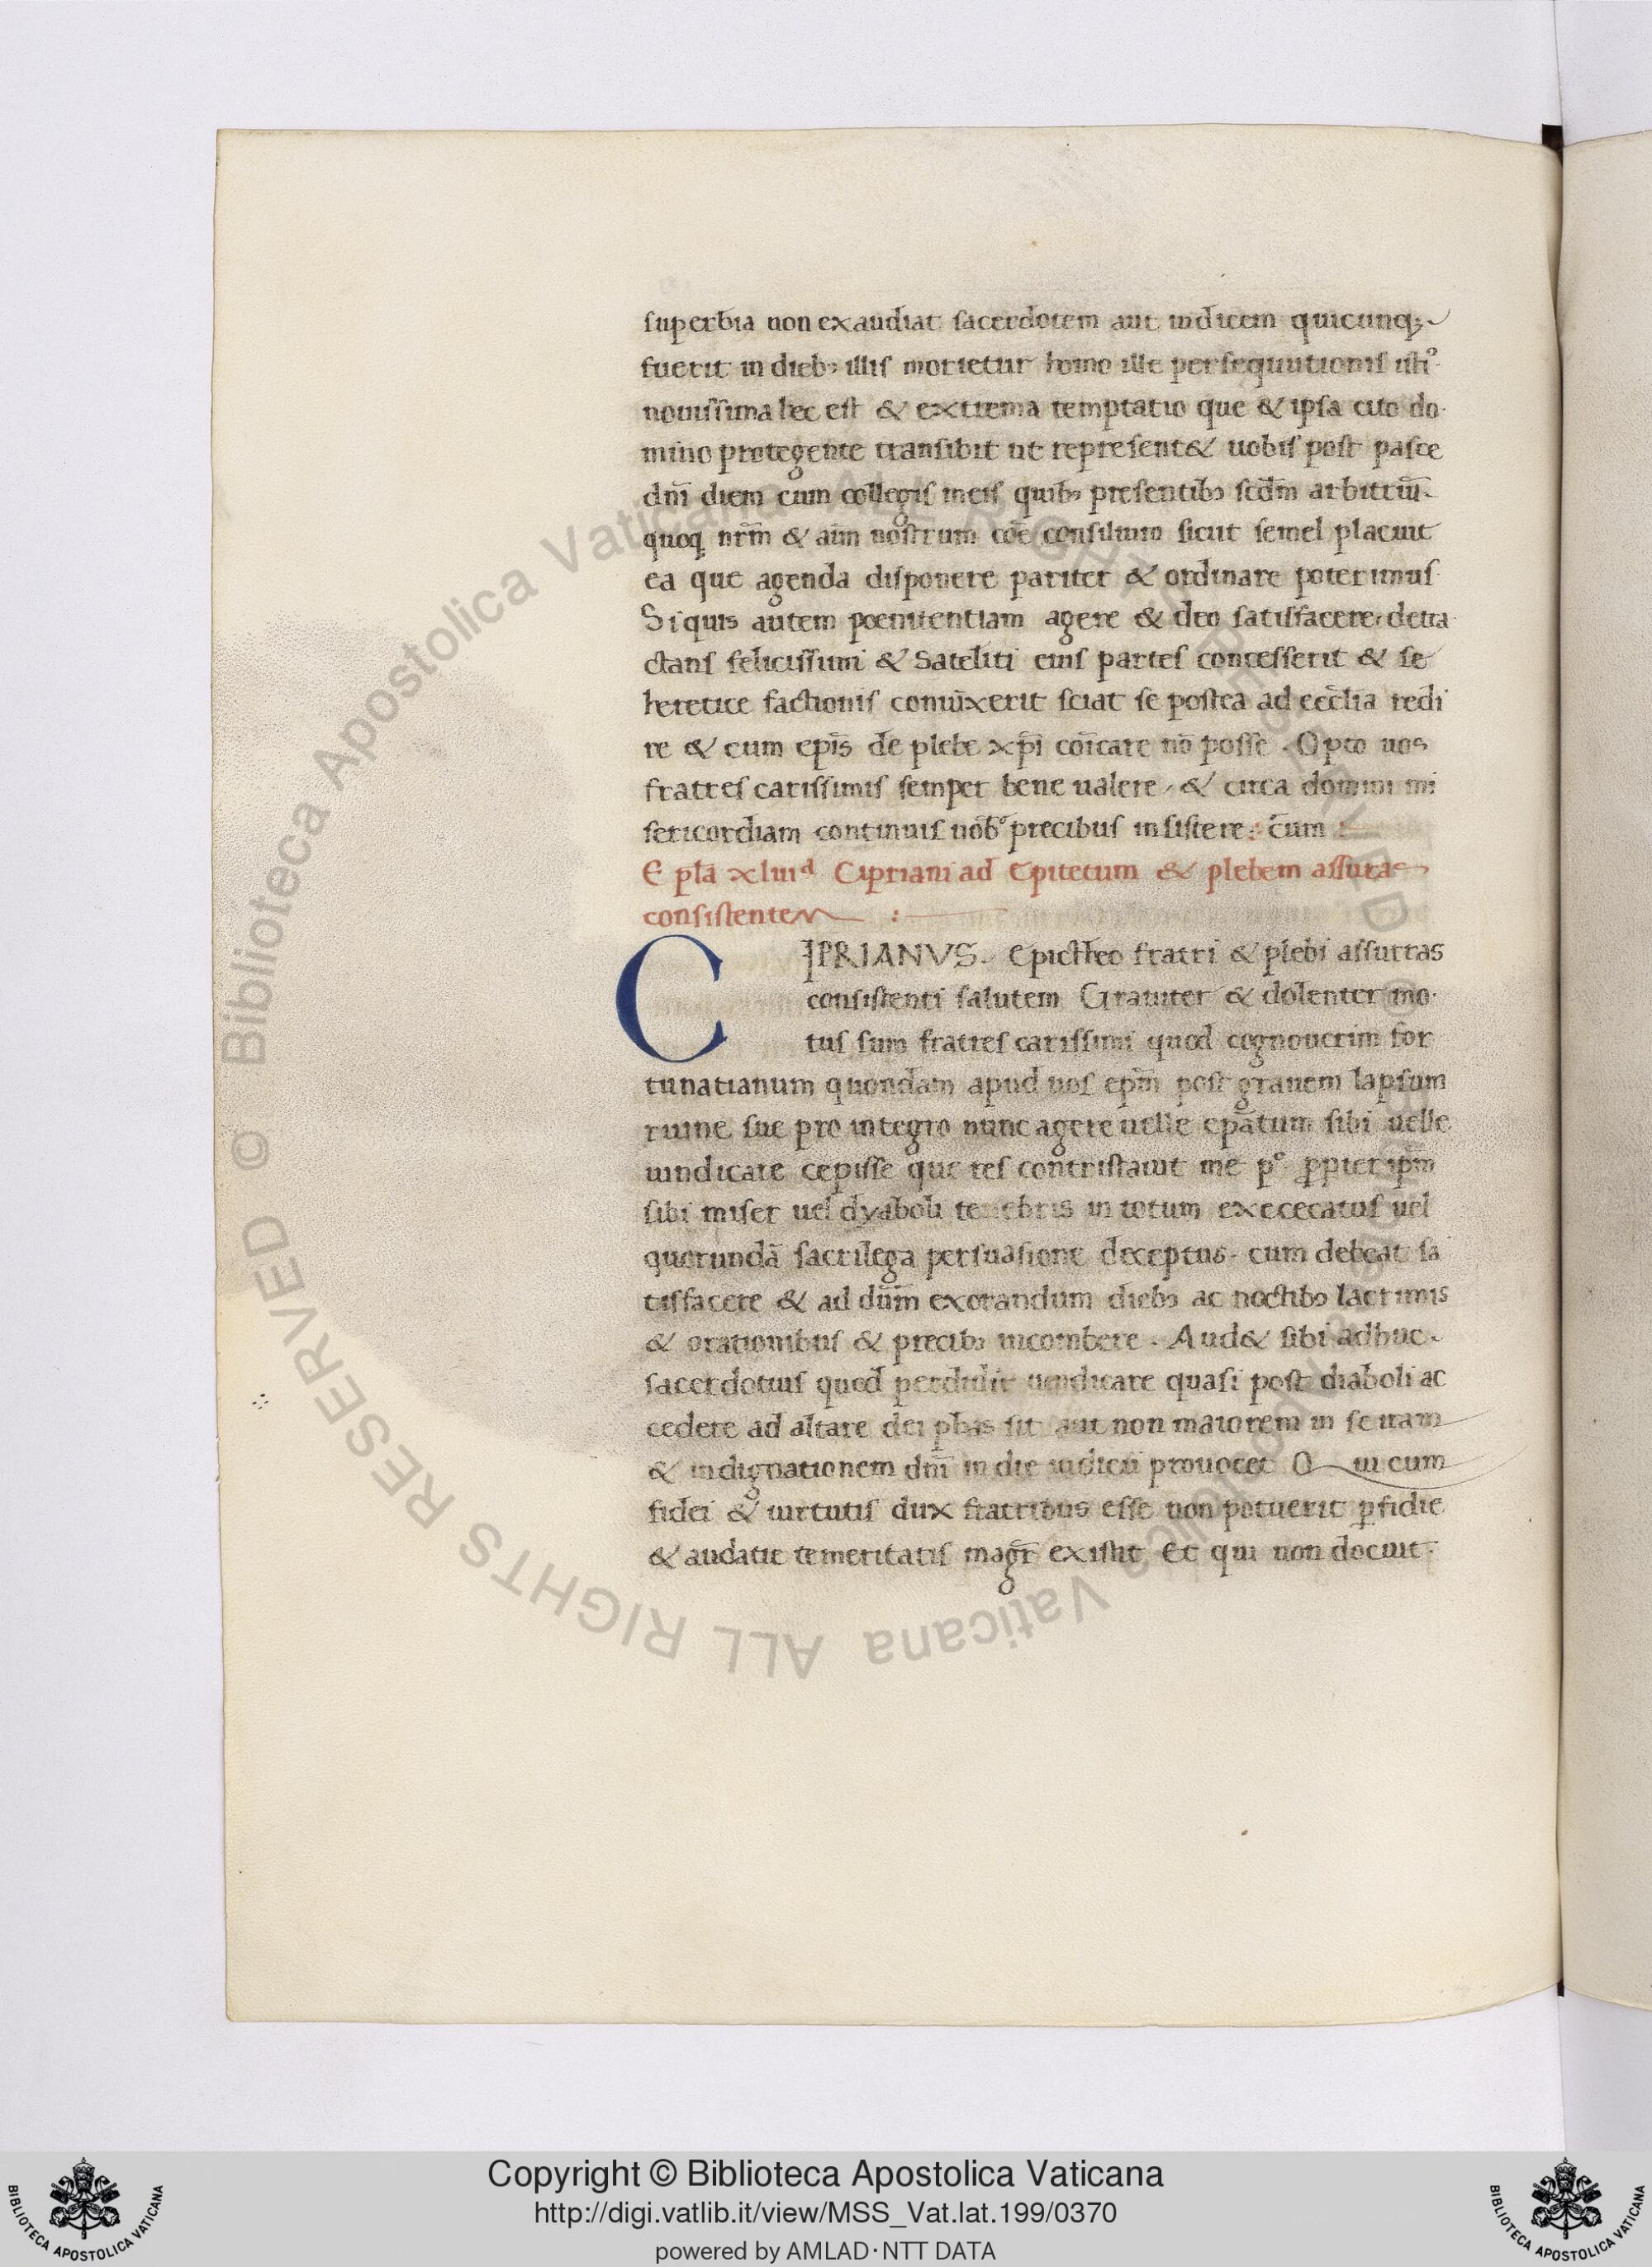 superbia non exaudiat sacerdotem aut iudicem quicunqꝫ
fuerit in diebꝰ illis morietur homo ille persequutionis istiꝰ
nouissima hec est & extrema temptatio que & ipsa cito do
mino protegente transibit ut represent& uobis post pasce
dn̄i diem cum collegis meis quibꝰ presentibꝰ scd̄m arbitriū
quoqꝫ nr̄m & aūn nostrum cōe consilium sicut semel placuit
ea que agenda disponere pariter & ordinare poterimus
Si quis autem poenitentiam agere & deo satisfacere detra
ctans felicissimi & Sateliti eius partes concesserit & se
heretice factionis coniūxerit sciat se postea ad eccl̄ia redi
re & cum ep̄is de plebe xp̄i cōicare nō posse . Opto uos
fratres carissimis semper bene ualere, & circa domini mi
sericordiam continuis nōbꝰ precibus insistere: cum :
E pl̄a xluiiᵈ Cipriani ad Epitetum & plebem assuras
consistentem :
CIPRIANVS. Epictheo fratri & plebi assurras
consistenti salutem Grauiter & dolenter mo
tus sum fratres carissimi quod cognouerim for
tunatianum quondam apud uos ep̄m post grauem lapsum
ruine sue pro integro nunc agere uelle ep̄atum sibi uelle
uindicare cepisse que res contristauit me p° ꝓpter ip̄m
sibi miser uel dyaboli tenebris in totum exececatus uel
quorundā sacrilega persuasione deceptus. cum debeat sa
tisfacere & ad dūm exorandum diebꝰ ac noctibꝰ lacrimis
& orationibus & precibꝰ incombere . Aud& sibi adhuc
sacerdotius quod perdidit uendicare quasi post diaboli ac
cedere ad altare dei phas sit aut non maiorem in se iram
& indignationem dn̄i in die iudicii prouocet Qui cum
fidei & uirtutis dux fratribus esse non potuerit ꝑfidie
& audatie temeritatis magr̄ existit Et qui non docuit
Copyright © Biblioteca Apostolica Vaticana
http://digi.vatlib.it/view/MSS_Vat.lat.199/0370
powered by AMLAD·NTT DATA
© Biblioteca Apostolica Vaticana ALL RIGHTS RESERVED
© Biblioteca Apostolica Vaticana ALL RIGHTS RESERVED
BIBLIOTECA APOSTOLICA VATICANA
BIBLIOTECA APOSTOLICA VATICANA